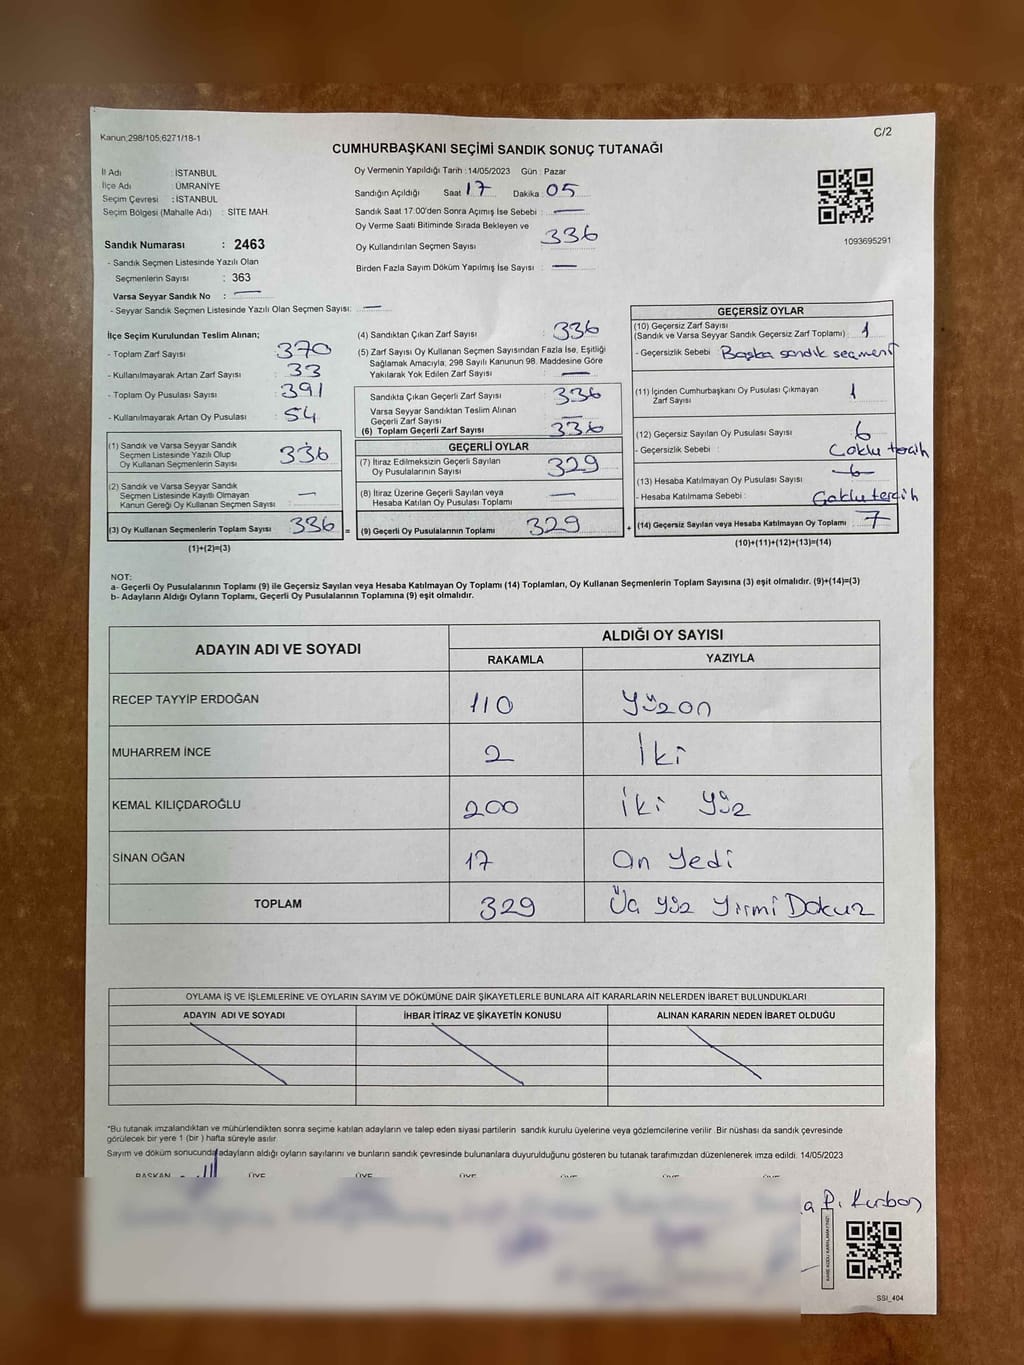 Kanun;298/105,6271/18-1
C/2
CUMHURBAŞKANI SEÇİMİ SANDIK SONUÇ TUTANAĞI
İl Adı : İSTANBUL
İlçe Adı : ÜMRANİYE
Seçim Çevresi : İSTANBUL
Seçim Bölgesi (Mahalle Adı) : SİTE MAH.
Sandık Numarası : 2463
- Sandık Seçmen Listesinde Yazılı Olan
Seçmenlerin Sayısı : 363
Varsa Seyyar Sandık No : —
- Seyyar Sandık Seçmen Listesinde Yazılı Olan Seçmen Sayısı: —
Oy Vermenin Yapıldığı Tarih :14/05/2023 Gün : Pazar
Sandığın Açıldığı Saat 17 Dakika : 05
Sandık Saat 17:00'den Sonra Açımış İse Sebebi : —
Oy Verme Saati Bitiminde Sırada Bekleyen ve
Oy Kullandırılan Seçmen Sayısı 336
Birden Fazla Sayım Döküm Yapılmış İse Sayısı : —
1093695291
İlçe Seçim Kurulundan Teslim Alınan;
- Toplam Zarf Sayısı : 370
- Kullanılmayarak Artan Zarf Sayısı : 33
- Toplam Oy Pusulası Sayısı : 391
- Kullanılmayarak Artan Oy Pusulası : 54
(1) Sandık ve Varsa Seyyar Sandık
Seçmen Listesinde Yazılı Olup
Oy Kullanan Seçmenlerin Sayısı : 336
(2) Sandık ve Varsa Seyyar Sandık
Seçmen Listesinde Kayıtlı Olmayan
Kanun Gereği Oy Kullanan Seçmen Sayısı : —
(3) Oy Kullanan Seçmenlerin Toplam Sayısı 336 =
(1)+(2)=(3)
(4) Sandıktan Çıkan Zarf Sayısı : 336
(5) Zarf Sayısı Oy Kullanan Seçmen Sayısından Fazla İse, Eşitliği
Sağlamak Amacıyla; 298 Sayılı Kanunun 98. Maddesine Göre
Yakılarak Yok Edilen Zarf Sayısı : —
Sandıkta Çıkan Geçerli Zarf Sayısı 336
Varsa Seyyar Sandıktan Teslim Alınan
Geçerli Zarf Sayısı : —
(6) Toplam Geçerli Zarf Sayısı : 336
GEÇERLİ OYLAR
(7) İtiraz Edilmeksizin Geçerli Sayılan
Oy Pusulalarının Sayısı : 329
(8) İtiraz Üzerine Geçerli Sayılan veya
Hesaba Katılan Oy Pusulası Toplamı : —
(9) Geçerli Oy Pusulalarının Toplamı 329 +
GEÇERSİZ OYLAR
(10) Geçersiz Zarf Sayısı
(Sandık ve Varsa Seyyar Sandık Geçersiz Zarf Toplamı) : 1
- Geçersizlik Sebebi : Başka sandık seçmeni
(11) İçinden Cumhurbaşkanı Oy Pusulası Çıkmayan
Zarf Sayısı : 1
(12) Geçersiz Sayılan Oy Pusulası Sayısı : 6
- Geçersizlik Sebebi : Çoklu tercih
(13) Hesaba Katılmayan Oy Pusulası Sayısı
- Hesaba Katılmama Sebebi : Çoklu tercih
(14) Geçersiz Sayılan veya Hesaba Katılmayan Oy Toplamı 7
(10)+(11)+(12)+(13)=(14)
NOT:
a- Geçerli Oy Pusulalarının Toplamı (9) ile Geçersiz Sayılan veya Hesaba Katılmayan Oy Toplamı (14) Toplamları, Oy Kullanan Seçmenlerin Toplam Sayısına (3) eşit olmalıdır. (9)+(14)=(3)
b- Adayların Aldığı Oyların Toplamı, Geçerli Oy Pusulalarının Toplamına (9) eşit olmalıdır.
ADAYIN ADI VE SOYADI ALDIĞI OY SAYISI
RAKAMLA YAZIYLA
RECEP TAYYİP ERDOĞAN 110 Yüzon
MUHARREM İNCE 2 İki
KEMAL KILIÇDAROĞLU 200 İki Yüz
SİNAN OĞAN 17 On Yedi
TOPLAM 329 Üç Yüz Yirmi Dokuz
OYLAMA İŞ VE İŞLEMLERİNE VE OYLARIN SAYIM VE DÖKÜMÜNE DAİR ŞİKAYETLERLE BUNLARA AİT KARARLARIN NELERDEN İBARET BULUNDUKLARI
ADAYIN ADI VE SOYADI İHBAR İTİRAZ VE ŞİKAYETİN KONUSU ALINAN KARARIN NEDEN İBARET OLDUĞU
*Bu tutanak imzalandıktan ve mühürlendikten sonra seçime katılan adayların ve talep eden siyasi partilerin sandık kurulu üyelerine veya gözlemcilerine verilir. Bir nüshası da sandık çevresinde
görülecek bir yere 1 (bir ) hafta süreyle asılır.
Sayım ve döküm sonucunda adayların aldığı oyların sayılarını ve bunların sandık çevresinde bulunanlara duyurulduğunu gösteren bu tutanak tarafımızdan düzenlenerek imza edildi. 14/05/2023
BAŞKAN ÜYE ÜYE ÜYE ÜYE ÜYE
a P. Kurban
SSI_404